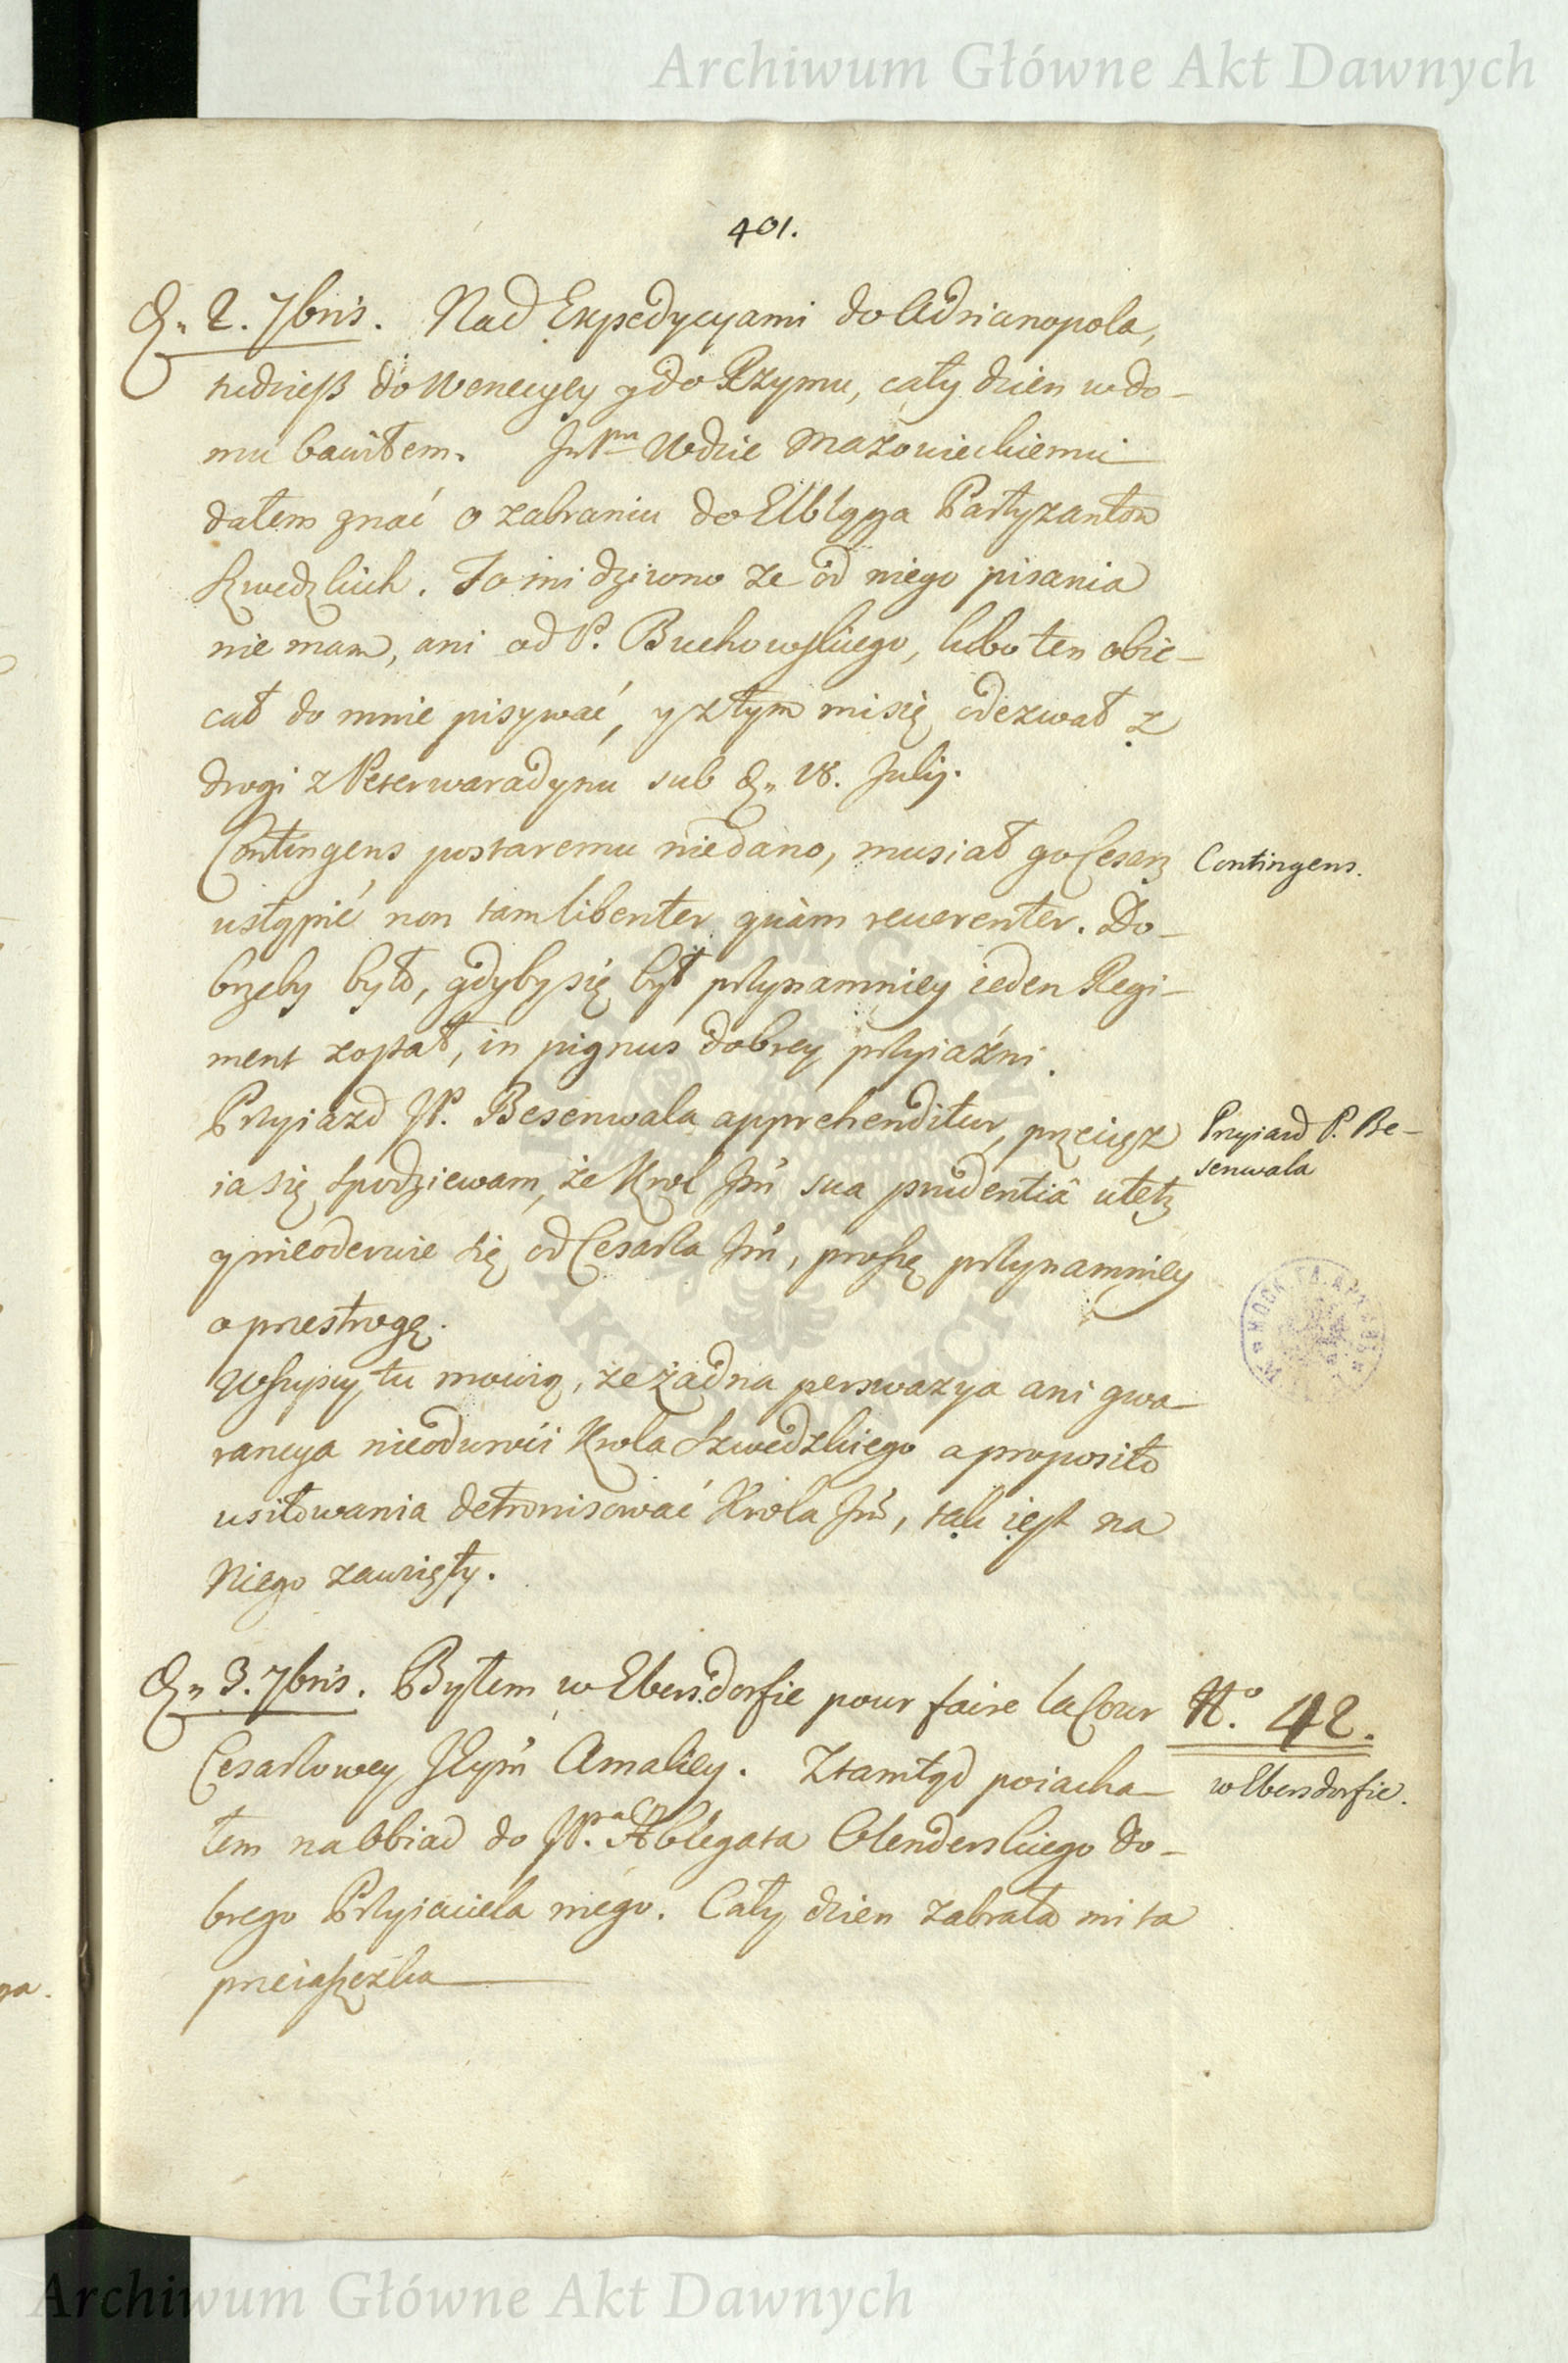 Archiwum Główne Akt Dawnych
401.
D. 2. 7bris. Nad Expedycyami do Adrianopola,
tudzież do Wenecyey y do Rzymu, cały dzien w do-
mu bawiłem. JmPnu Wdzie Mazowieckiemu
dałem znać o zabraniu do Elbląga Partyzantow
Szwedzkich. To mi dziwno ze od niego pisania
nie mam, ani od P. Buchowskiego, lubo ten obie-
cał do mnie pisywać, y z tym mi się odezwał z
drogi z Peterwaradynu sub D. 18. Julij.
Contingens postaremu niedano, musiał go Cesarz
Contingens.
ustąpić non tam libenter quàm reverenter. Do-
brzeby było, gdyby się był przynamniey ieden Regi-
ment został, in pignus dobrey przyiaźni.
Przyiazd JP. Besenwala apprehenditur, przeciesz
Przyiazd P. Be-
senwala
ia się spodziewam, że Krol Jm sua prudentiâ utetz
y nieoderwie się od Cesarza Jm, proszę przynamniey
o przestrogę.
Wszyscy tu mowią, że żadna perswazya ani gwa-
rancya nieodwroci Krola Szwedzkiego a proposito
usiłowania detronisować Krola Jm, tak iest na
Niego zawzięty.
D. 3. 7bris. Byłem w Ebersdorfie pour faire la Cour
No. 42.
Cesarzowey Jeym Amaliey. Ztamtąd poiacha-
w Ebersdorfie.
łem na Obiad do JPa Ablegata Olenderskiego do-
brego Przyiaciela mego. Cały dzien zabrała mi ta
przeiaszczka
Archiwum Główne Akt Dawnych